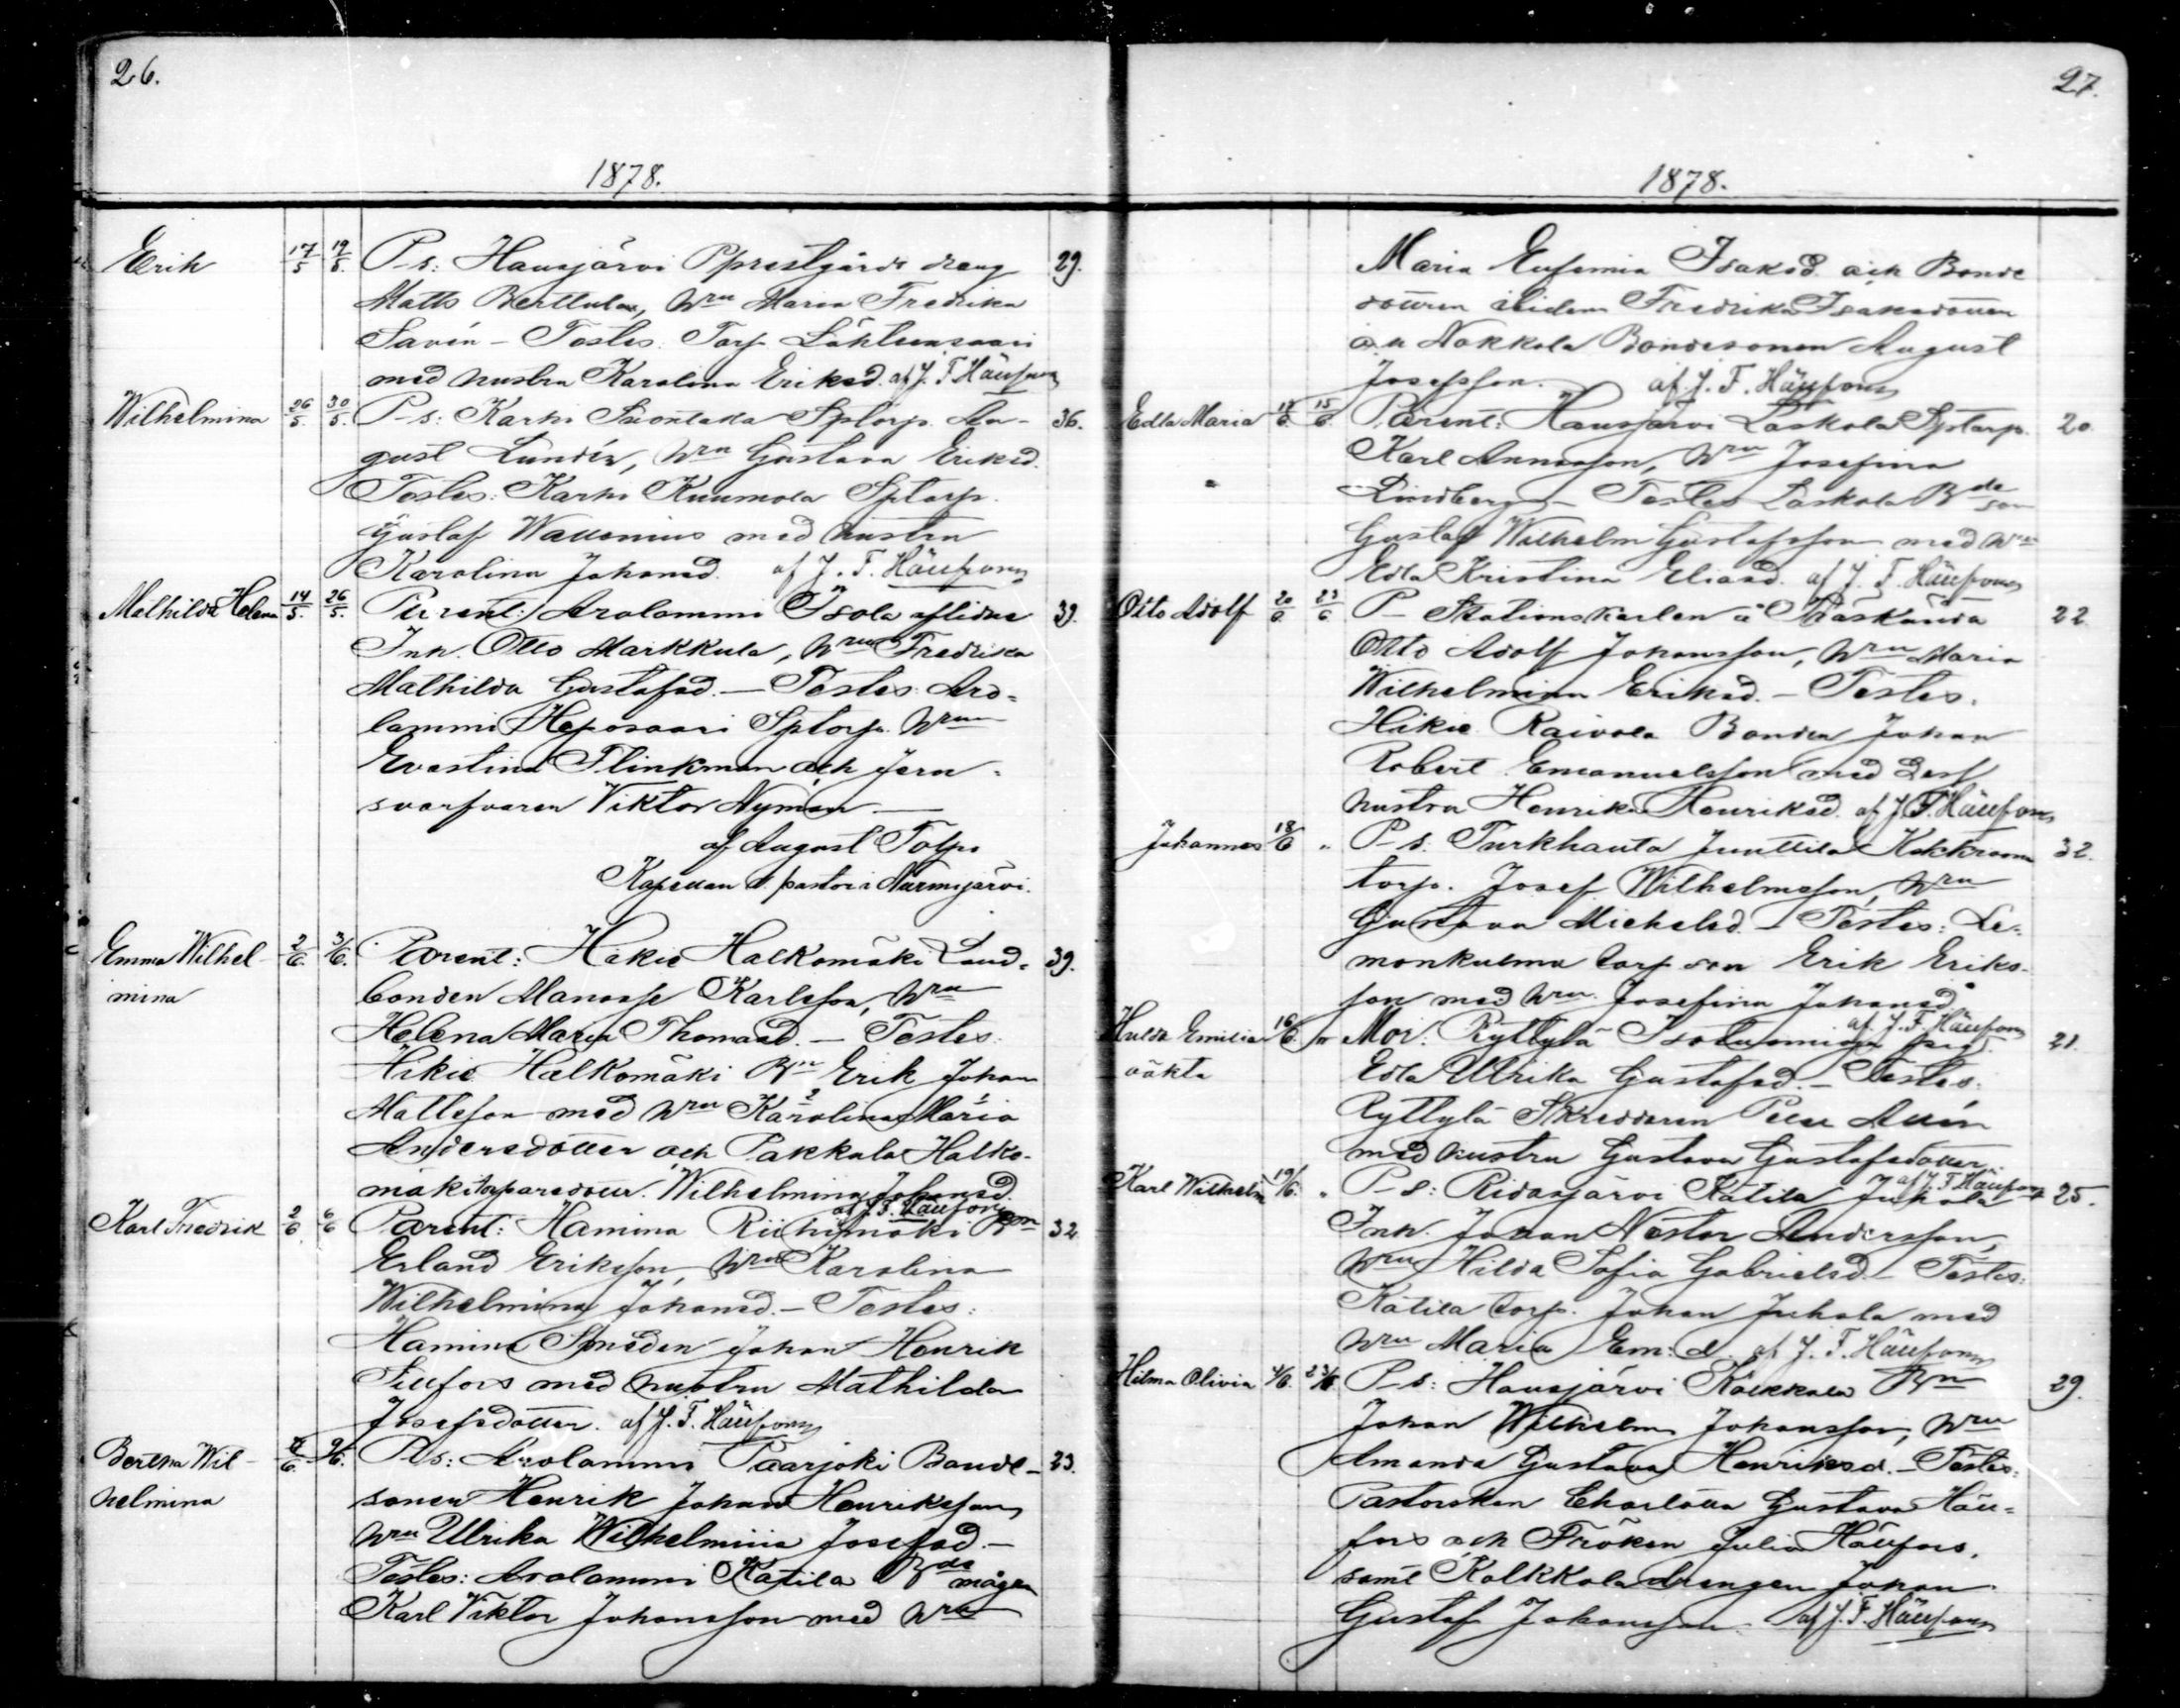 26.
1878.
Erik 17/5 19/5. P-s: Hausjärvi Pprestgårds dräng 29.
Matts Berttula, Hru Maria Fredrika
Savén - Testes. Torp. Löhteensaari
med hustru Karolina Eriksd. af J. F. Hällfors
Wilhelmina 26/5. 30/5. P-s: Karhi Sptorp. Au- 36.
gust Lundén, Hru Gustava Eriksd.
Testes: Karhi Kuumola Sptorp.
Gustaf Wallenius med hustru
Karolina Johansd. af J. F. Hällfors
Mathilda Helena 14/5. 26/5. Parent: Arolammi Isola aflidne 39.
Inh. Otto Markkula, Hru Fredrika
Mathilda Gustafsd. — Testes: Aro-
lammi Heposaari Sptorp. Hru
Evastina Flinkman och Jern-
svarfvaren Viktor Nyman —
af August Tolpo
Kapellan v. pastor i Nurmijärvi.
Emma Wilhel- 2/6. 3/6. Parent: Hikie Halkomäki Land- 39.
mina bonden Manasse Karlsson, Hru
Helena Maria Thomasd. — Testes:
Hikie Halkomäki Bn Erik Johan
Mattsson med Hru Karolina 2 Maria 1
Andersdotter och Pakkala Halko-
mäki torparedottr. Wilhelmina Johansd.
af J. F. Hällfors
Karl Fredrik 2/6 6/6 Parent: Hamina Riihimäki Bson 32.
Erland Eriksson, Hru Karolina
Wilhelmina Johansd. — Testes:
Hamina Smeden Johan Henrik
Sillfors med hustru Mathilda
Josefsdotter. af J. F. Hällfors
Bertha Wil- 9/6. P-s: Arolammi Paarjoki Bonde- 23.
helmina sonen Henrik Johan Henriksson,
Hru Ulrika Wilhelmina Josefsd. —
Testes: Arolammi Katila Bde mågen
Karl Viktor Johansson med Hru
27.
1878.
Maria Eufemia Isaksd. och Bonde
dottren ibidem Fredrika Isaksdotter
Nokkola Bondesonen August
Josefsson. af J. F. Hällfors
Edla Maria 15/6 Parent: Hausjärvi Laskola Sptorp. 20.
Karl Annasson, Hru Josefina
Lindberg — Testes Laskola Bde son
Gustaf Wilhelm Gustafsson med Hru
Edla Kristina Eliasd. af J. F. Hällfors
Otto Adolf 20/6 23/6 P- Stationskarlen å Träskända 22.
Otto Adolf Johansson, Hru Maria
Wilhelmina Eriksd. — Testes.
Hikie Raivola Bonden Johan
Robert Emanuelsson med dess
hustru Henrika Henriksd. af J. F. Hällfors
Johannes 18/6 " P-s. Turkhauta Junttila 32.
torp. Josef Wilhelmsson, Hru
Gustava Michelsd. — Testes: Le-
monkulma torp. son Erik Eriks-
son med Hru Josefina Johansd.
af J. F. Hällfors
Hulda Emilia 16/6. " Mor: Ryttylä Isotuomi pig. 21.
oäkta Edla Ulrika Gustafsd. — Testes:
Ryttylä Skreddaren
med hustru Gustava Gustafsdotter
af J. F. Hällfors
Karl Wilhelm 19/6. " P-s: Ridasjärvi Katila Juhola 25.
Inh. Johan Nestor Andersson,
Hru Hilda Sofia Gabrielsd. — Testes:
Katila torp. Johan Juhola med
Hru Maria Em:d. af J. F. Hällfors
Hilma Olivia 4/6. 23/6 P-s: Hausjärvi Kolkkala Bn 29.
Johan Wilhelm Johansson, Hru
Amanda Gustava Henriksd. — Testes:
Pastorskan Charlotta Gustava Häll-
fors och Fröken Julia Hällfors,
samt Kolkkala drängen Johan
Gustaf Johansson. af J. F. Hällfors